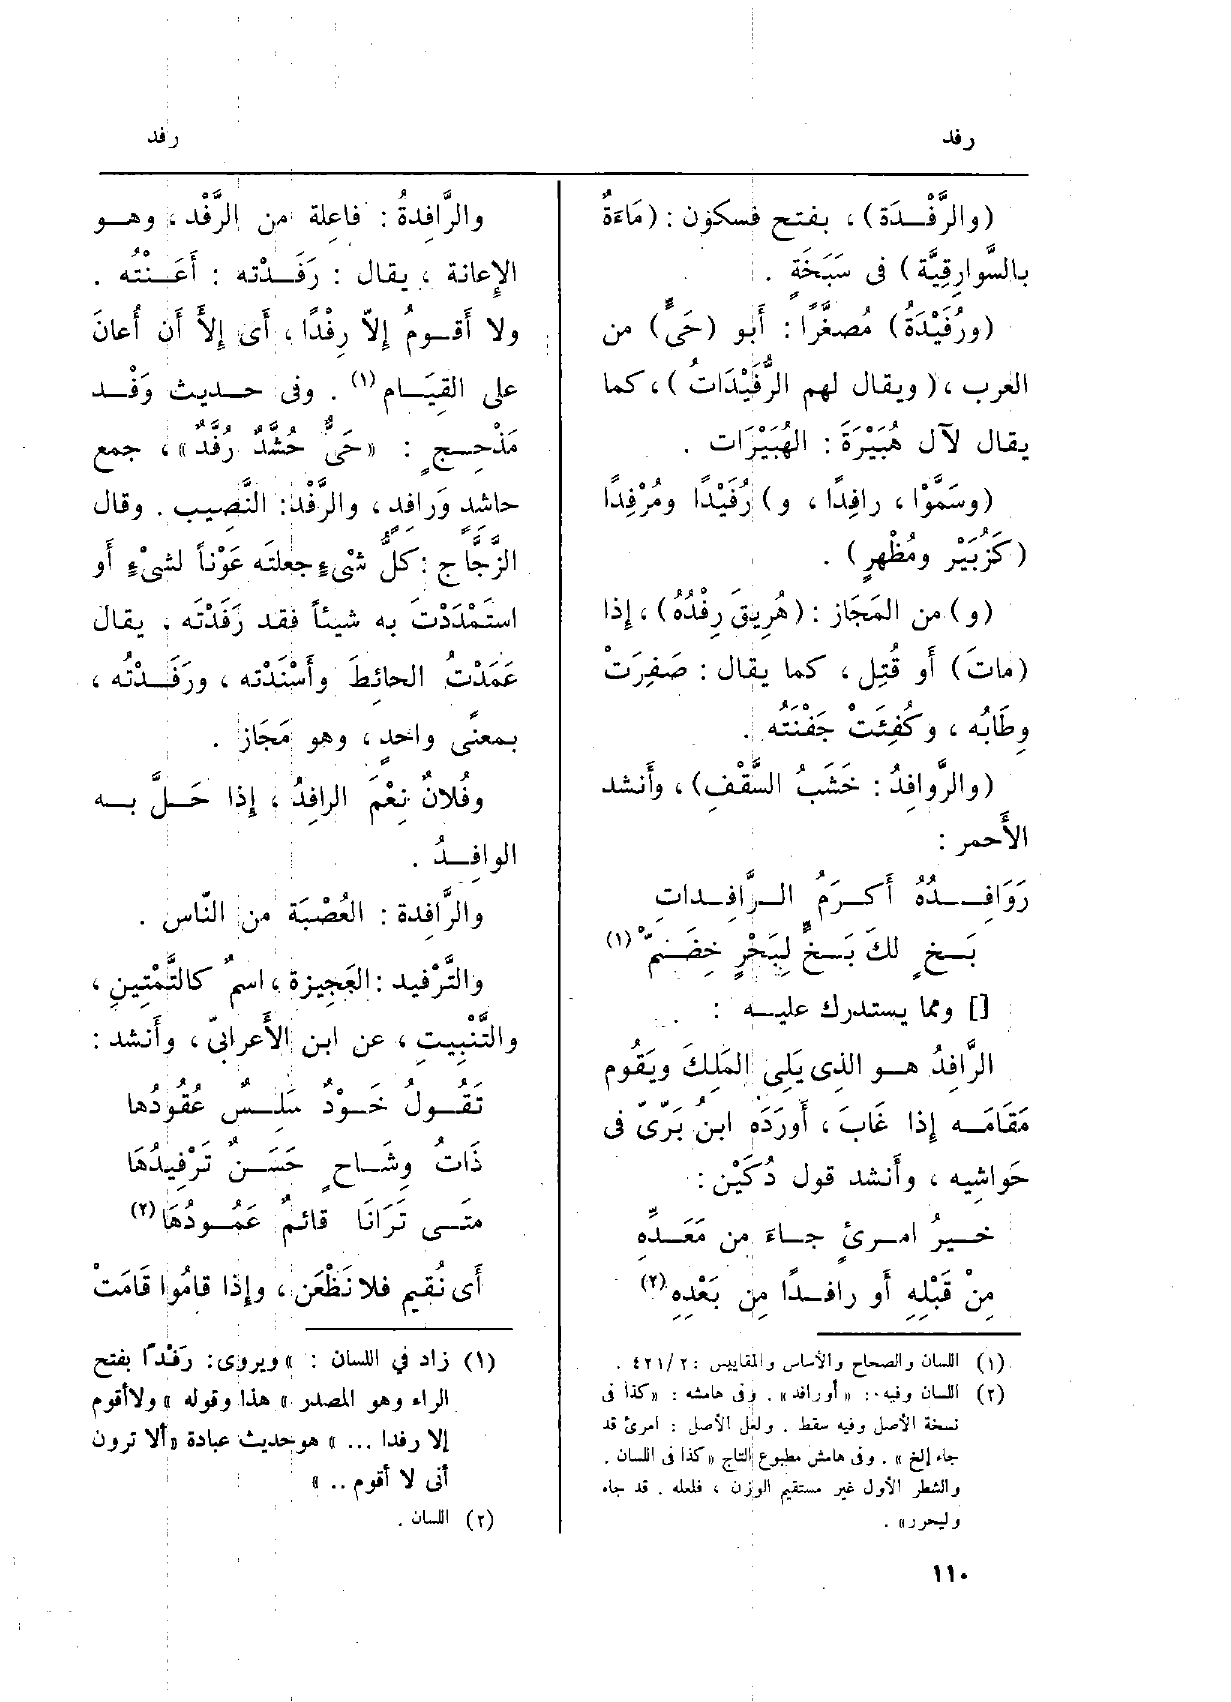 رفد
رفد
(والرَّفْدَة) ، بفتح فسكون : (مَاءَةٌ
بالسَّوارِقيَّة) فى سَبَخَةٍ .
(ورُفَيْدَةُ) مُصغَّرًا : أَبو (حَىٍّ) من
العرب ، (ويقال لهم الرُّفَيْدَاتُ) ، كما
يقال لآل هُبَيْرَةَ : الهُبَيْرَات .
(وسَمَّوْا ، رافِدًا ، و) رُفَيْدًا ومُرْفِدًا
(كزُبَيْر ومُظْهِرٍ) .
(و) من المَجَاز : (هُرِيقَ رِفْدُهُ) ، إذا
(ماتَ) أَو قُتِل ، كما يقال : صَفِرَتْ
وِطَابُه ، وكُفِئَتْ جَفْنَتُه .
(والرَّوافِدُ : خَشَبُ السَّقْفِ) ، وأَنشد
الأَحمر :
رَوَافِـــدُهُ أَكــرَمُ الــرَّافِــدات
بَــخٍ لكَ بَــخٍّ لِبَحْرٍ خِضَــمّ (١)
[] ومما يستدرك عليــه :
الرَّافِدُ هــو الذِى يَلِى المَلِكَ ويَقُوم
مَقَامَــه إذا غَابَ ، أَورَدَه ابنُ بَرّىّ فى
حَواشِيه ، وأَنشد قول دُكَيْن :
خــيرُ امــرئٍ جــاءَ مِن مَعَــدِّهِ
مِنْ قَبْلِهِ أَو رافِــدًا مِن بَعْدِهِ (٢)
(١) اللسان والصحاح والأساس والمقاييس : ٤٢١/٢ .
(٢) اللسان وفيه : «أورافد» . وفى هامشه : «كذا فى
نسخة الأصل وفيه سقط . ولعل الأصل : امرئ قد
جاء إلخ » . وفى هامش مطبوع التاج «كذا فى اللسان .
والشطر الأول غير مستقيم الوزن ، فلعله . قد جاء
وليحرر» .
والرَّافِدةُ : فاعِلة من الرَّفْد ، وهــو
الإعانة ، يقال : رَفَــدْته : أَعَــنْتُه .
ولا أَقــومُ إلاّ رِفْدًا ، أَى إلاَّ أَن أُعانَ
على القِيَــام (١) . وفى حــديث وَفْــد
مَذْحِــجٍ : «حَىٌّ حُشَّدٌ رُفَّدٌ» ، جمع
حاشدٍ وَرافِدٍ ، والرَّفْد: النَّصِيب . وقال
الزَّجَّاج : كلُّ شىْءٍ جعلتَه عَوْناً لشىْءٍ أَو
استَمْدَدْتَ به شيئاً فقد رَفَدْتَه . يقال
عَمَدْتُ الحائطَ وأَسْنَدْته ، ورَفَــدْتُه ،
بمعنًى واحدٍ ، وهو مَجَاز .
وفُلانٌ نِعْمَ الرافِدُ ، إذا حَــلَّ بــه
الوافِــدُ .
والرَّافِدة : العُصْبَة من النّاس .
والتَّرْفيد : العَجِيزة ، اسمٌ كالتَّمْتِينِ ،
والتَّنْبِيتِ ، عن ابن الأَعرابىّ ، وأَنشد :
تَقُــولُ خَــوْدٌ سَلِــسٌ عُقُودُها
ذَاتُ وِشَــاحٍ حَسَــنٌ تَرْفِيدُهَا
متَــى تَرَانَا قائمٌ عَمُــودُهَا (٢)
أَى نُقِيم فلا نَظْعَن ، وإذا قامُوا قَامَتْ
(١) زاد في اللسان : «ويروى: رَفْدًا بفتح
الراء وهو المصدر» هذا وقوله «ولاأقوم
إلا رفدا ... » هوحديث عبادة «ألا ترون
أنى لا أقوم .. »
(٢) اللسان .
١١٠